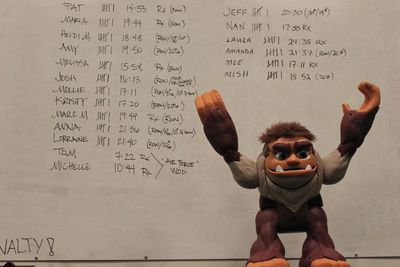 PAT 14:53 Rx (ROW)
MARIA 19:44 Rx (ROW)
HEIDI M 18:48
AMY 19:50 (ROW/20#)
MELISSA 15:58 (ROW)
JOSH 16:13
MOLLIE 17:11
KRISTY 17:20 (ROW/20#)
MARC M 19:49 Rx (ROW)
ANNA 21:56
LORRAINE 21:40 (ROW/20#)
TOM 7:22 Rx
"AIR FORCE" WOD
MICHELLE 10:44 Rx
JEFF 20:30
NAN 17:38 Rx
LAURA 24:35 Rx
AMANDA 21:37 (ROW/20#)
MOE 17:11 Rx
MISH 18:52
NALTY!